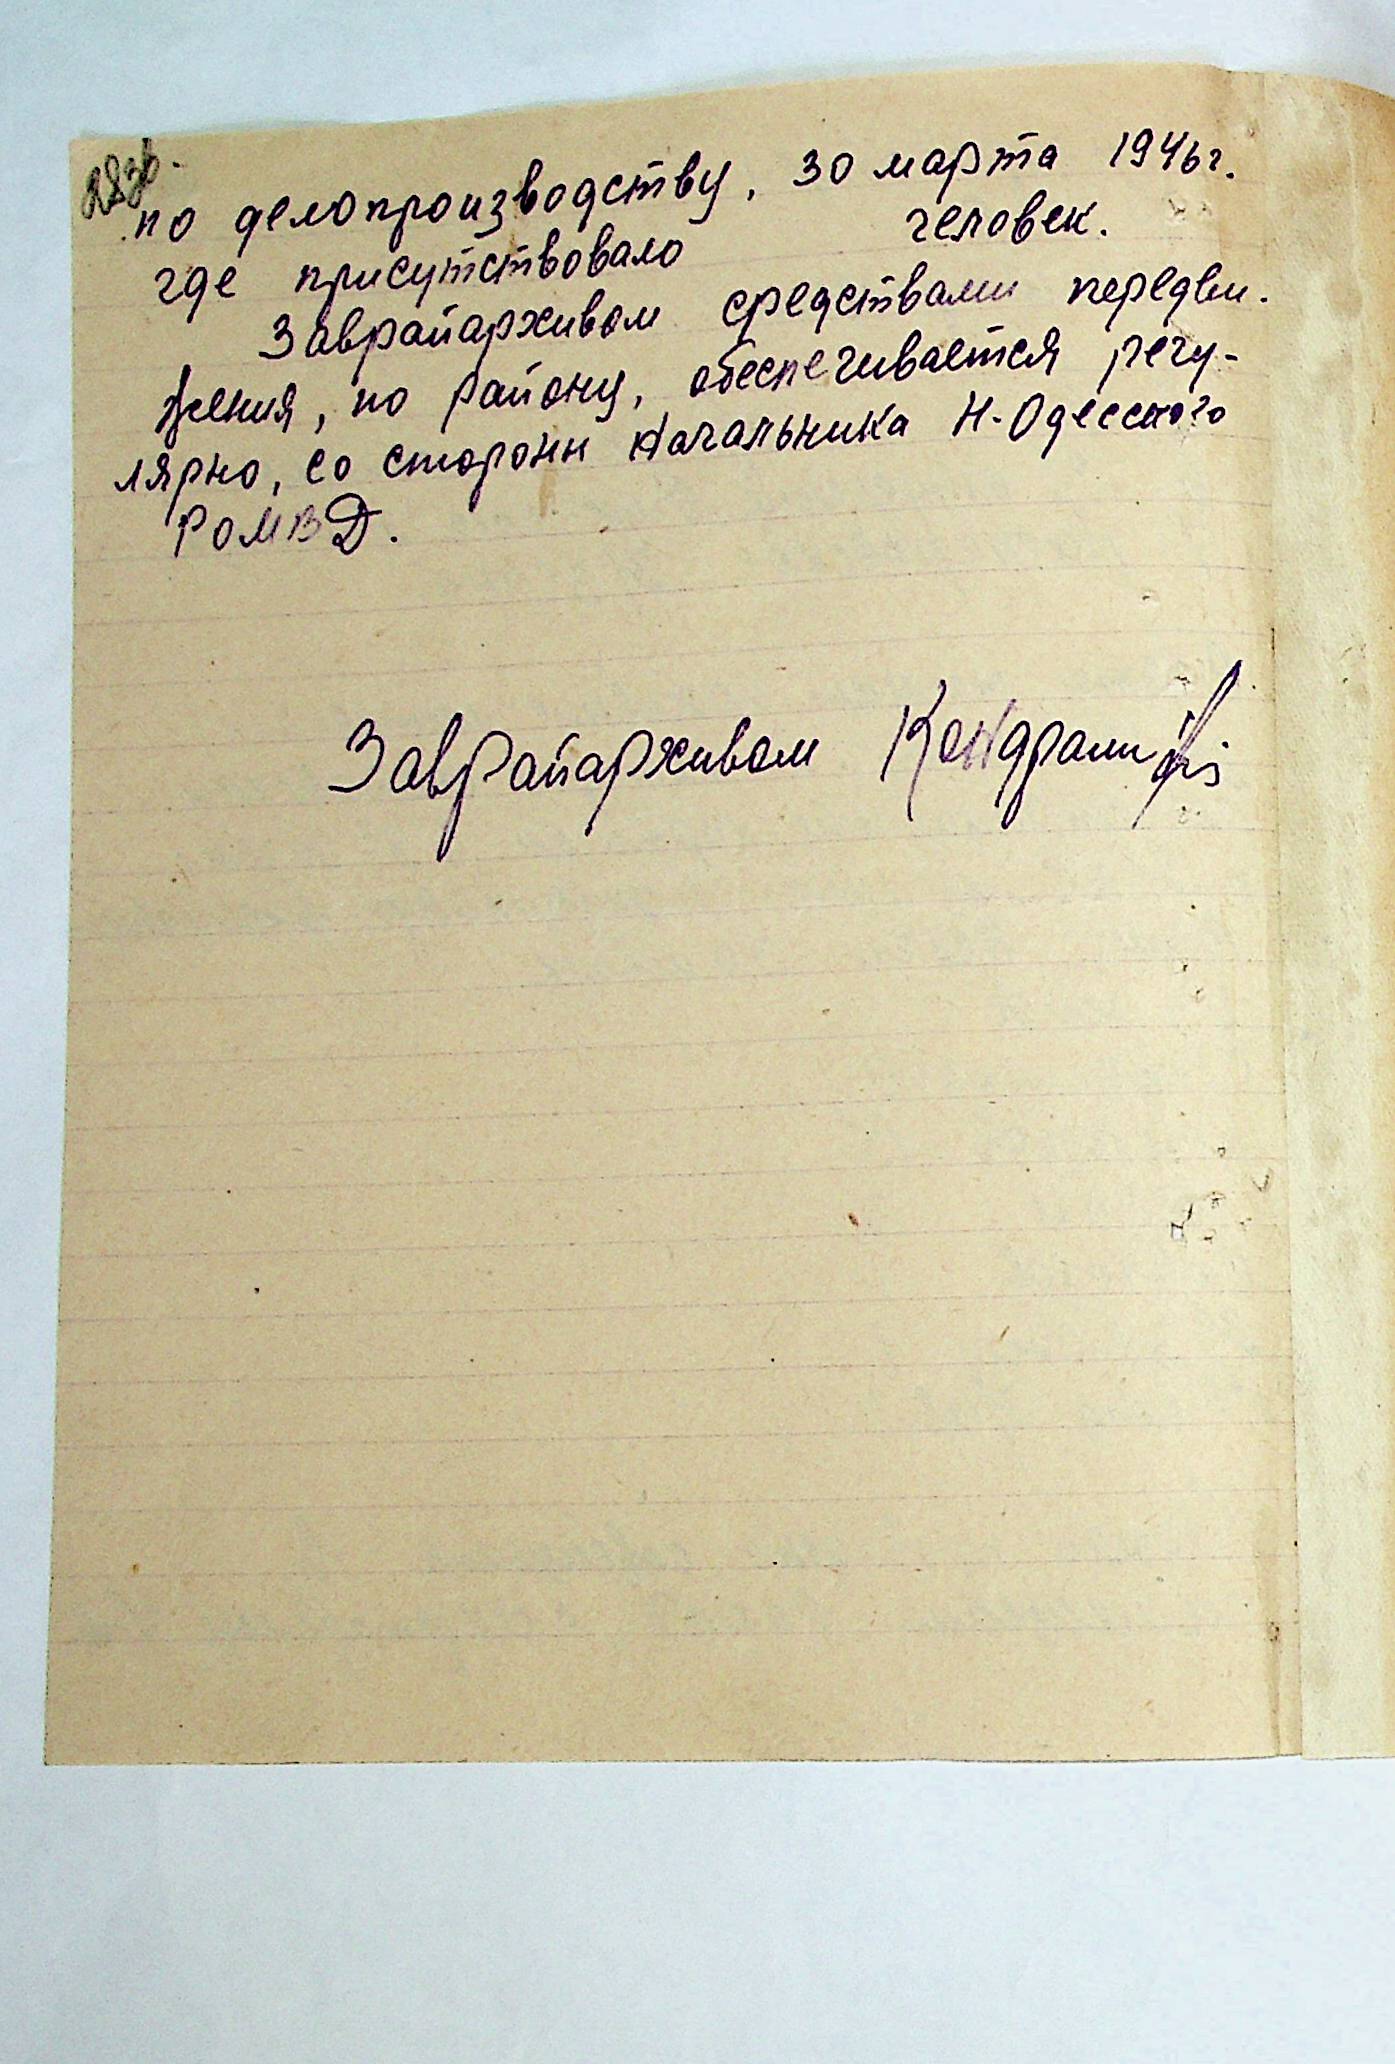 по делопроизводству, 30 марта 1946г.
где присутствовало человек.
Заврайархивом средствами передви-
жения, по району, обеспечивается регу-
лярно, со стороны Начальника Н-Одесского
РОМВД.
Заврайархивом